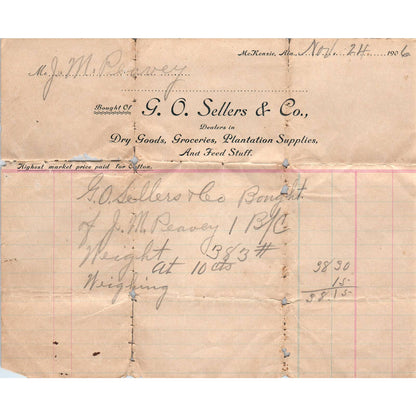 McKenzie, Ala. Nov. 24 1906
M J. M. Peavey
Bought Of G. O. Sellers & Co.,
Dealers in
Dry Goods, Groceries, Plantation Supplies,
And Feed Stuff.
Highest market price paid for Cotton.
G. O. Sellers & Co Bought
of J. M. Peavey 1 B/C
Weight 383#
At 10 cts 3830
Weighing 15
3815